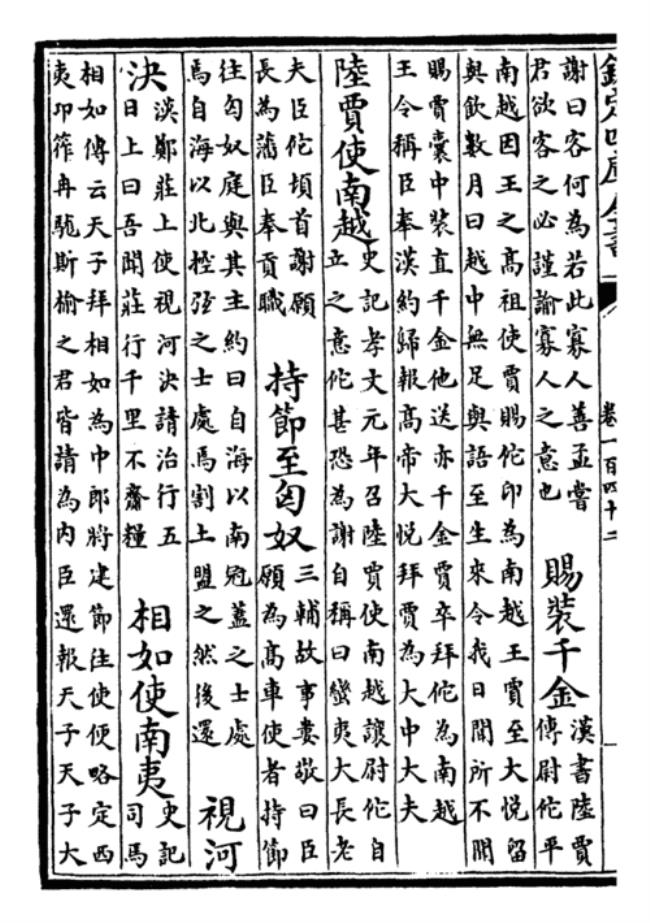 欽定四庫全書
卷一百四十二
謝曰客何為若此寡人善孟嘗
君欲客之必謹諭寡人之意也
賜裝千金
漢書陸賈
傳尉佗平
南越因王之高祖使賈賜佗印為南越王賈至大悅留
與飲數月曰越中無足與語至生來令我日聞所不聞
賜賈囊中裝直千金他送亦千金賈卒拜佗為南越
王令稱臣奉漢約歸報高帝大悅拜賈為大中大夫
陸賈使南越
史記孝文元年召陸賈使南越讓尉佗自
立之意佗甚恐為謝自稱曰蠻夷大長老
夫臣佗頓首謝願
長為藩臣奉貢職
持節至匈奴
三輔故事婁敬曰臣
願為高車使者持節
往匈奴庭與其主約曰自海以南冠蓋之士處
焉自海以北控弦之士處焉割土盟之然後還
視河
決
漢鄭莊上使視河決請治行五
日上曰吾聞莊行千里不齎糧
相如使南夷
史記
司馬
相如傳云天子拜相如為中郎將建節往使便略定西
夷邛筰冉駹斯榆之君皆請為內臣還報天子天子大